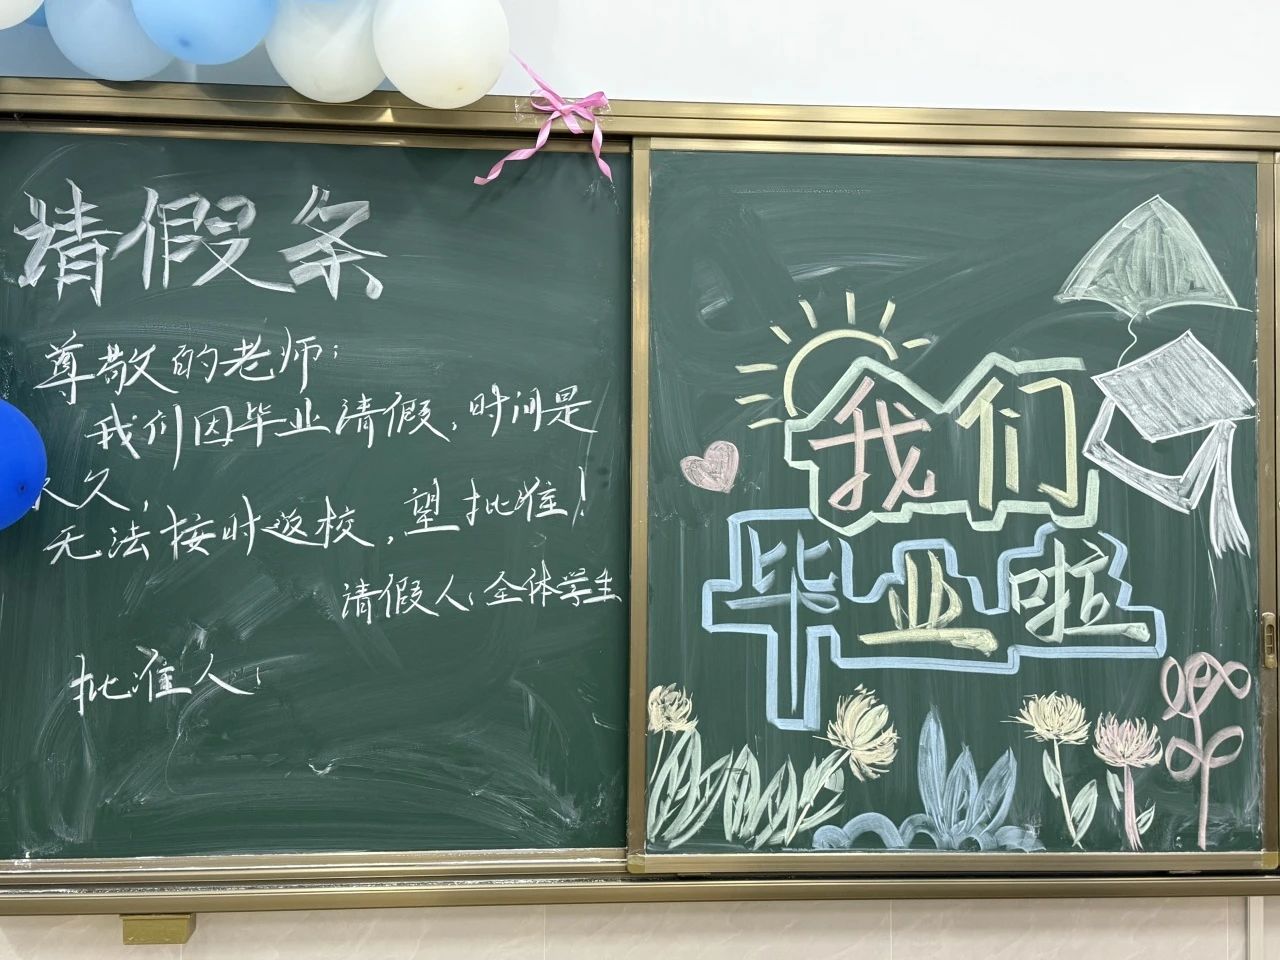 请假条
尊敬的老师：
我们因毕业请假，时间是
久久，
无法按时返校，望批准！
请假人：全体学生
批准人：
我们
毕业啦